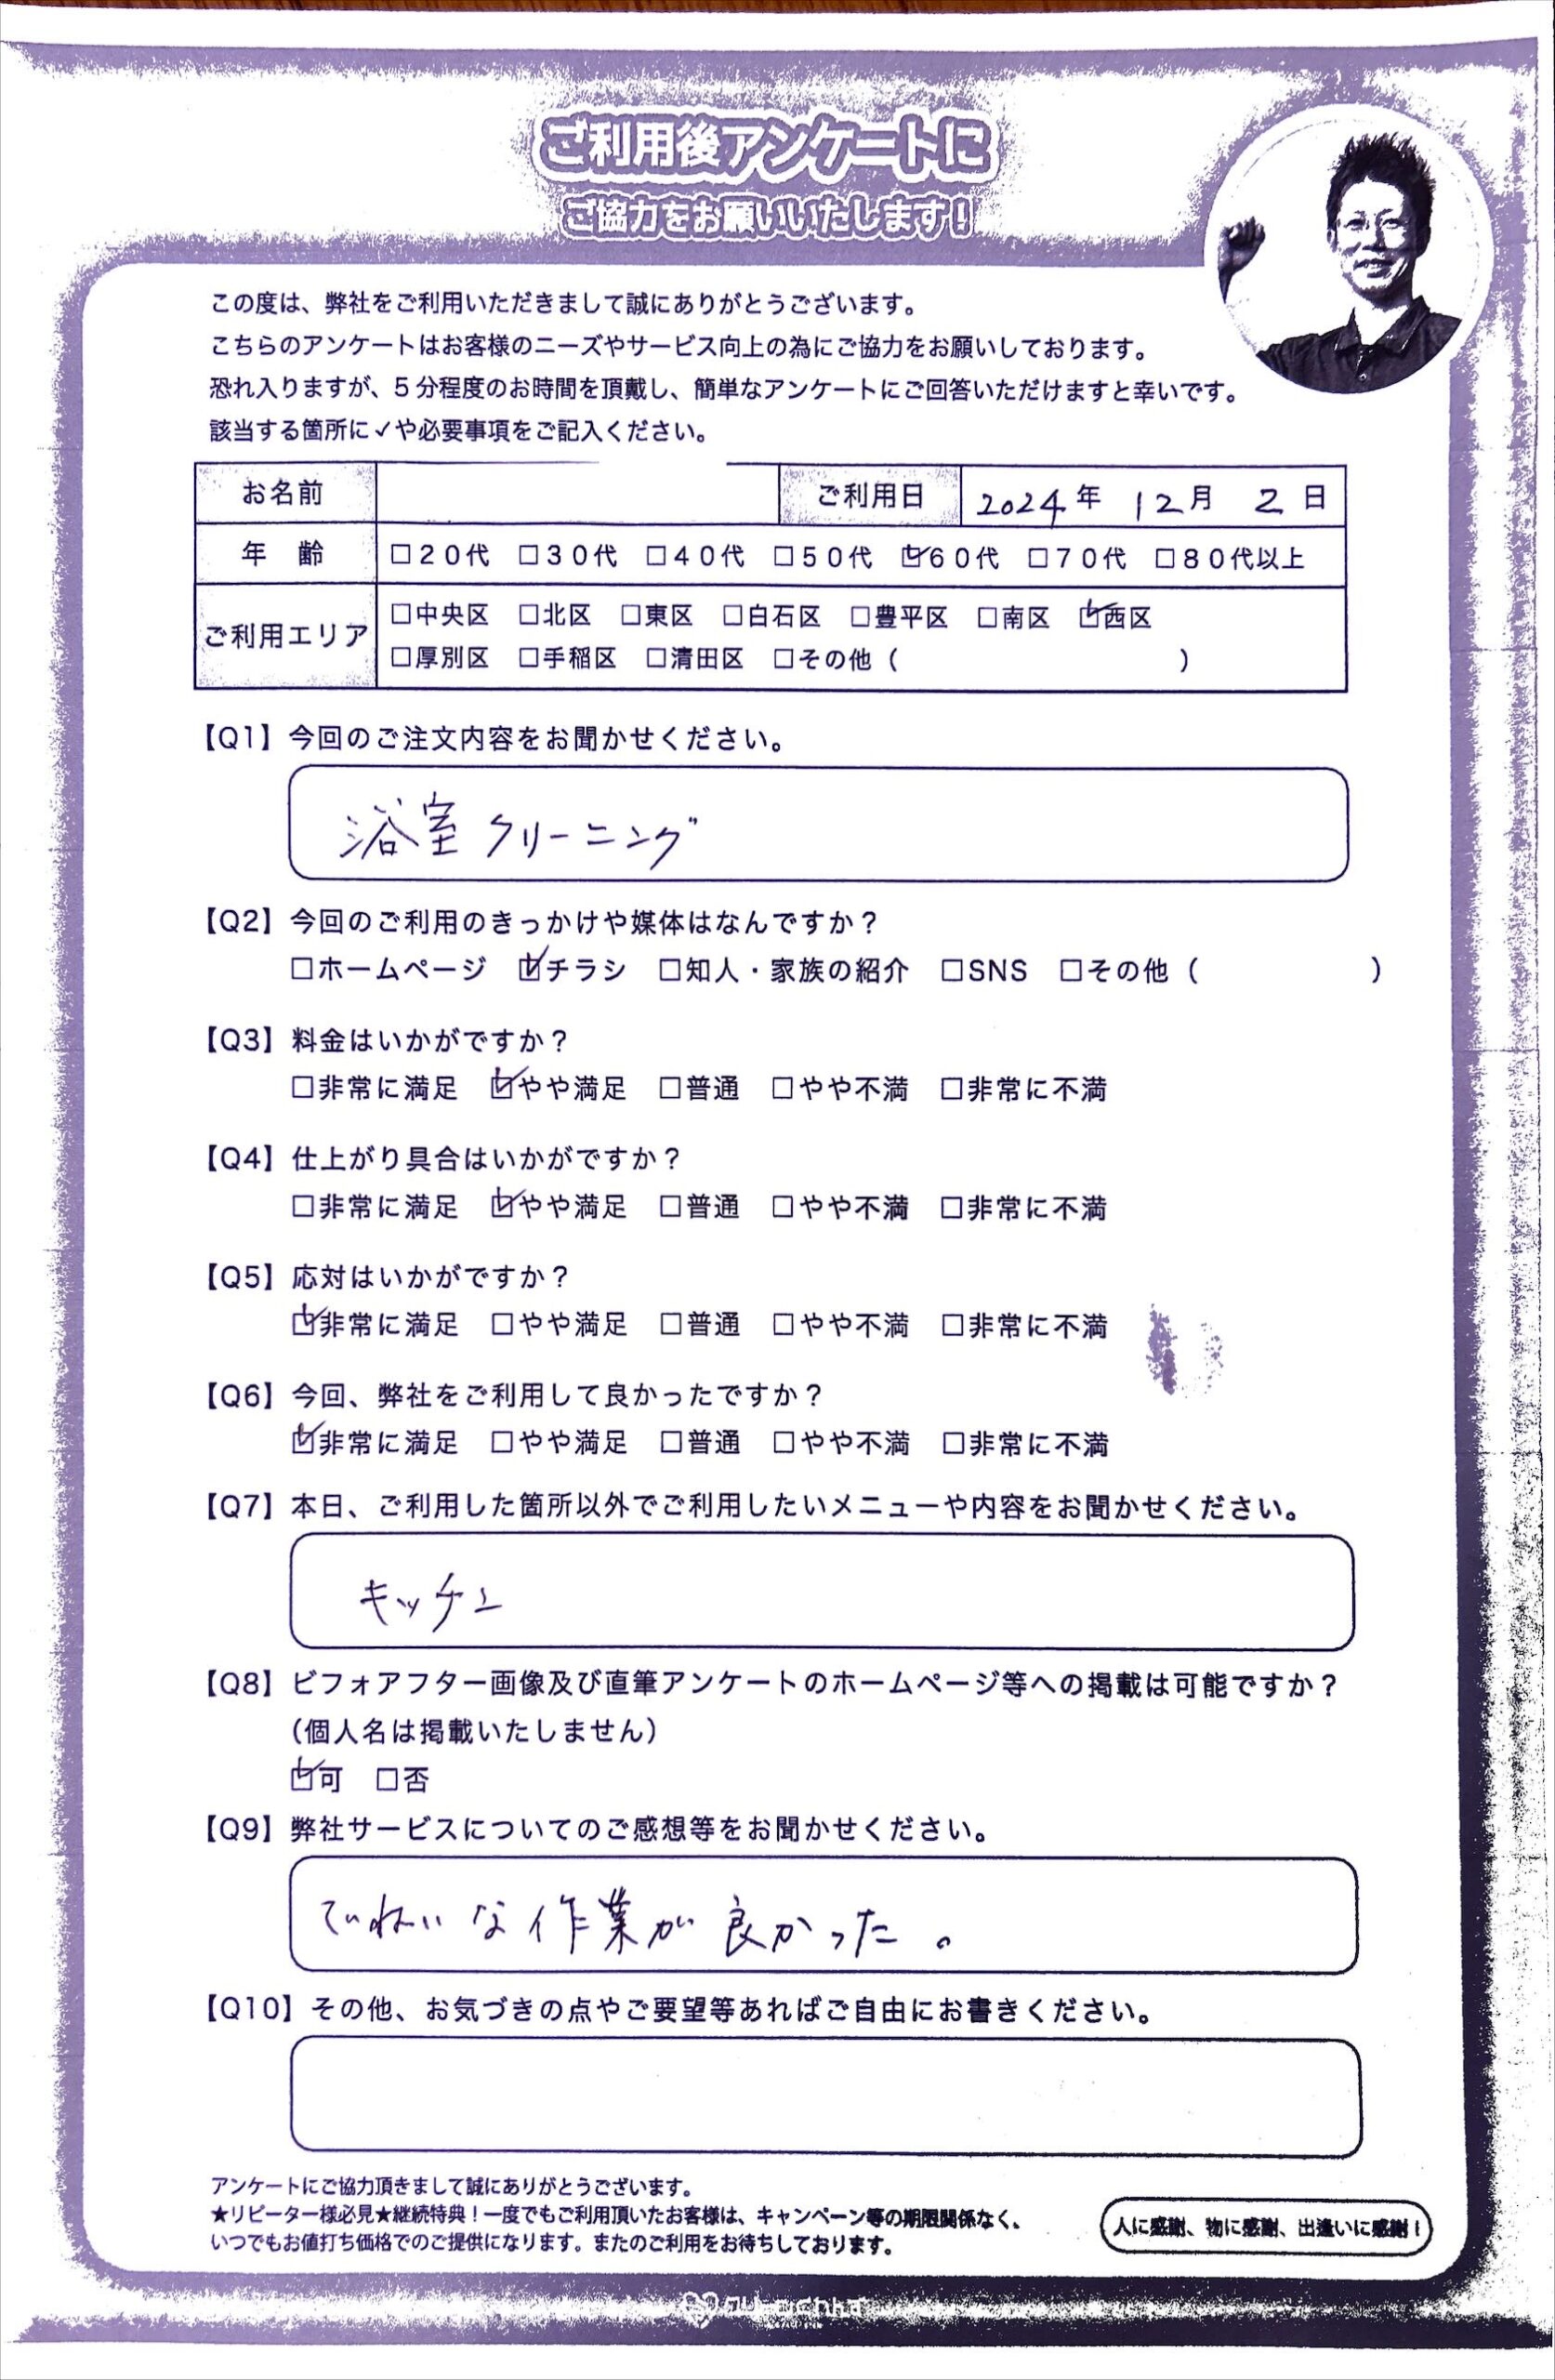 ご利用後アンケートに
ご協力をお願いいたします!
この度は、弊社をご利用いただきまして誠にありがとうございます。
こちらのアンケートはお客様のニーズやサービス向上の為にご協力をお願いしております。
恐れ入りますが、5分程度のお時間を頂戴し、簡単なアンケートにご回答いただけますと幸いです。
該当する箇所に✓や必要事項をご記入ください。
お名前 ご利用日 2024年 12月 2日
年 齢 □20代 □30代 □40代 □50代 ☑60代 □70代 □80代以上
ご利用エリア □中央区 □北区 □東区 □白石区 □豊平区 □南区 ☑西区
□厚別区 □手稲区 □清田区 □その他( )
【Q1】今回のご注文内容をお聞かせください。
浴室クリーニング
【Q2】今回のご利用のきっかけや媒体はなんですか?
□ホームページ ☑チラシ □知人・家族の紹介 □SNS □その他( )
【Q3】料金はいかがですか?
□非常に満足 ☑やや満足 □普通 □やや不満 □非常に不満
【Q4】仕上がり具合はいかがですか?
□非常に満足 ☑やや満足 □普通 □やや不満 □非常に不満
【Q5】応対はいかがですか?
☑非常に満足 □やや満足 □普通 □やや不満 □非常に不満
【Q6】今回、弊社をご利用して良かったですか?
☑非常に満足 □やや満足 □普通 □やや不満 □非常に不満
【Q7】本日、ご利用した箇所以外でご利用したいメニューや内容をお聞かせください。
キッチン
【Q8】ビフォアフター画像及び直筆アンケートのホームページ等への掲載は可能ですか?
(個人名は掲載いたしません)
☑可 □否
【Q9】弊社サービスについてのご感想等をお聞かせください。
ていねいな作業が良かった。
【Q10】その他、お気づきの点やご要望等あればご自由にお書きください。
アンケートにご協力頂きまして誠にありがとうございます。
★リピーター様必見★継続特典!一度でもご利用頂いたお客様は、キャンペーン等の期限関係なく、
いつでもお値打ち価格でのご提供になります。またのご利用をお待ちしております。
人に感謝、物に感謝、出逢いに感謝!